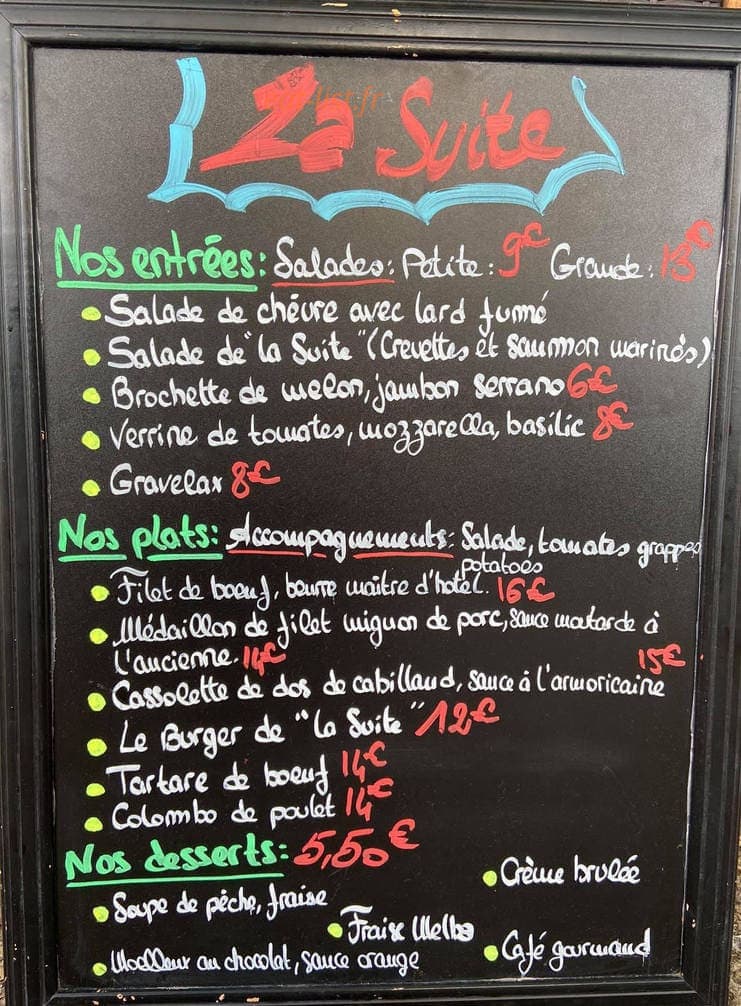 La Suite
Nos entrées: Salades: Petite: 9€ Grande: 13€
Salade de chèvre avec lard fumé
Salade de "la Suite" (Crevettes et saummon marinés)
Brochette de melon, jambon serrano 6€
Verrine de tomates, mozzarella, basilic 8€
Gravelax 8€
Nos plats: Accompagnements: Salade, tomates grappes
potatoes
Filet de boeuf, beurre maitre d'hotel. 16€
Médaillon de filet mignon de porc, sauce moutarde à
l'ancienne. 14€ 15€
Cassolette de dos de cabillaud, sauce à l'armoricaine
Le Burger de "la Suite" 12€
Tartare de boeuf 14€
Colombo de poulet 14€
Nos desserts: 5,50€
Crème brulée
Soupe de pêche, fraise
Fraise Melba
Moelleux au chocolat, sauce orange
Café gourmand